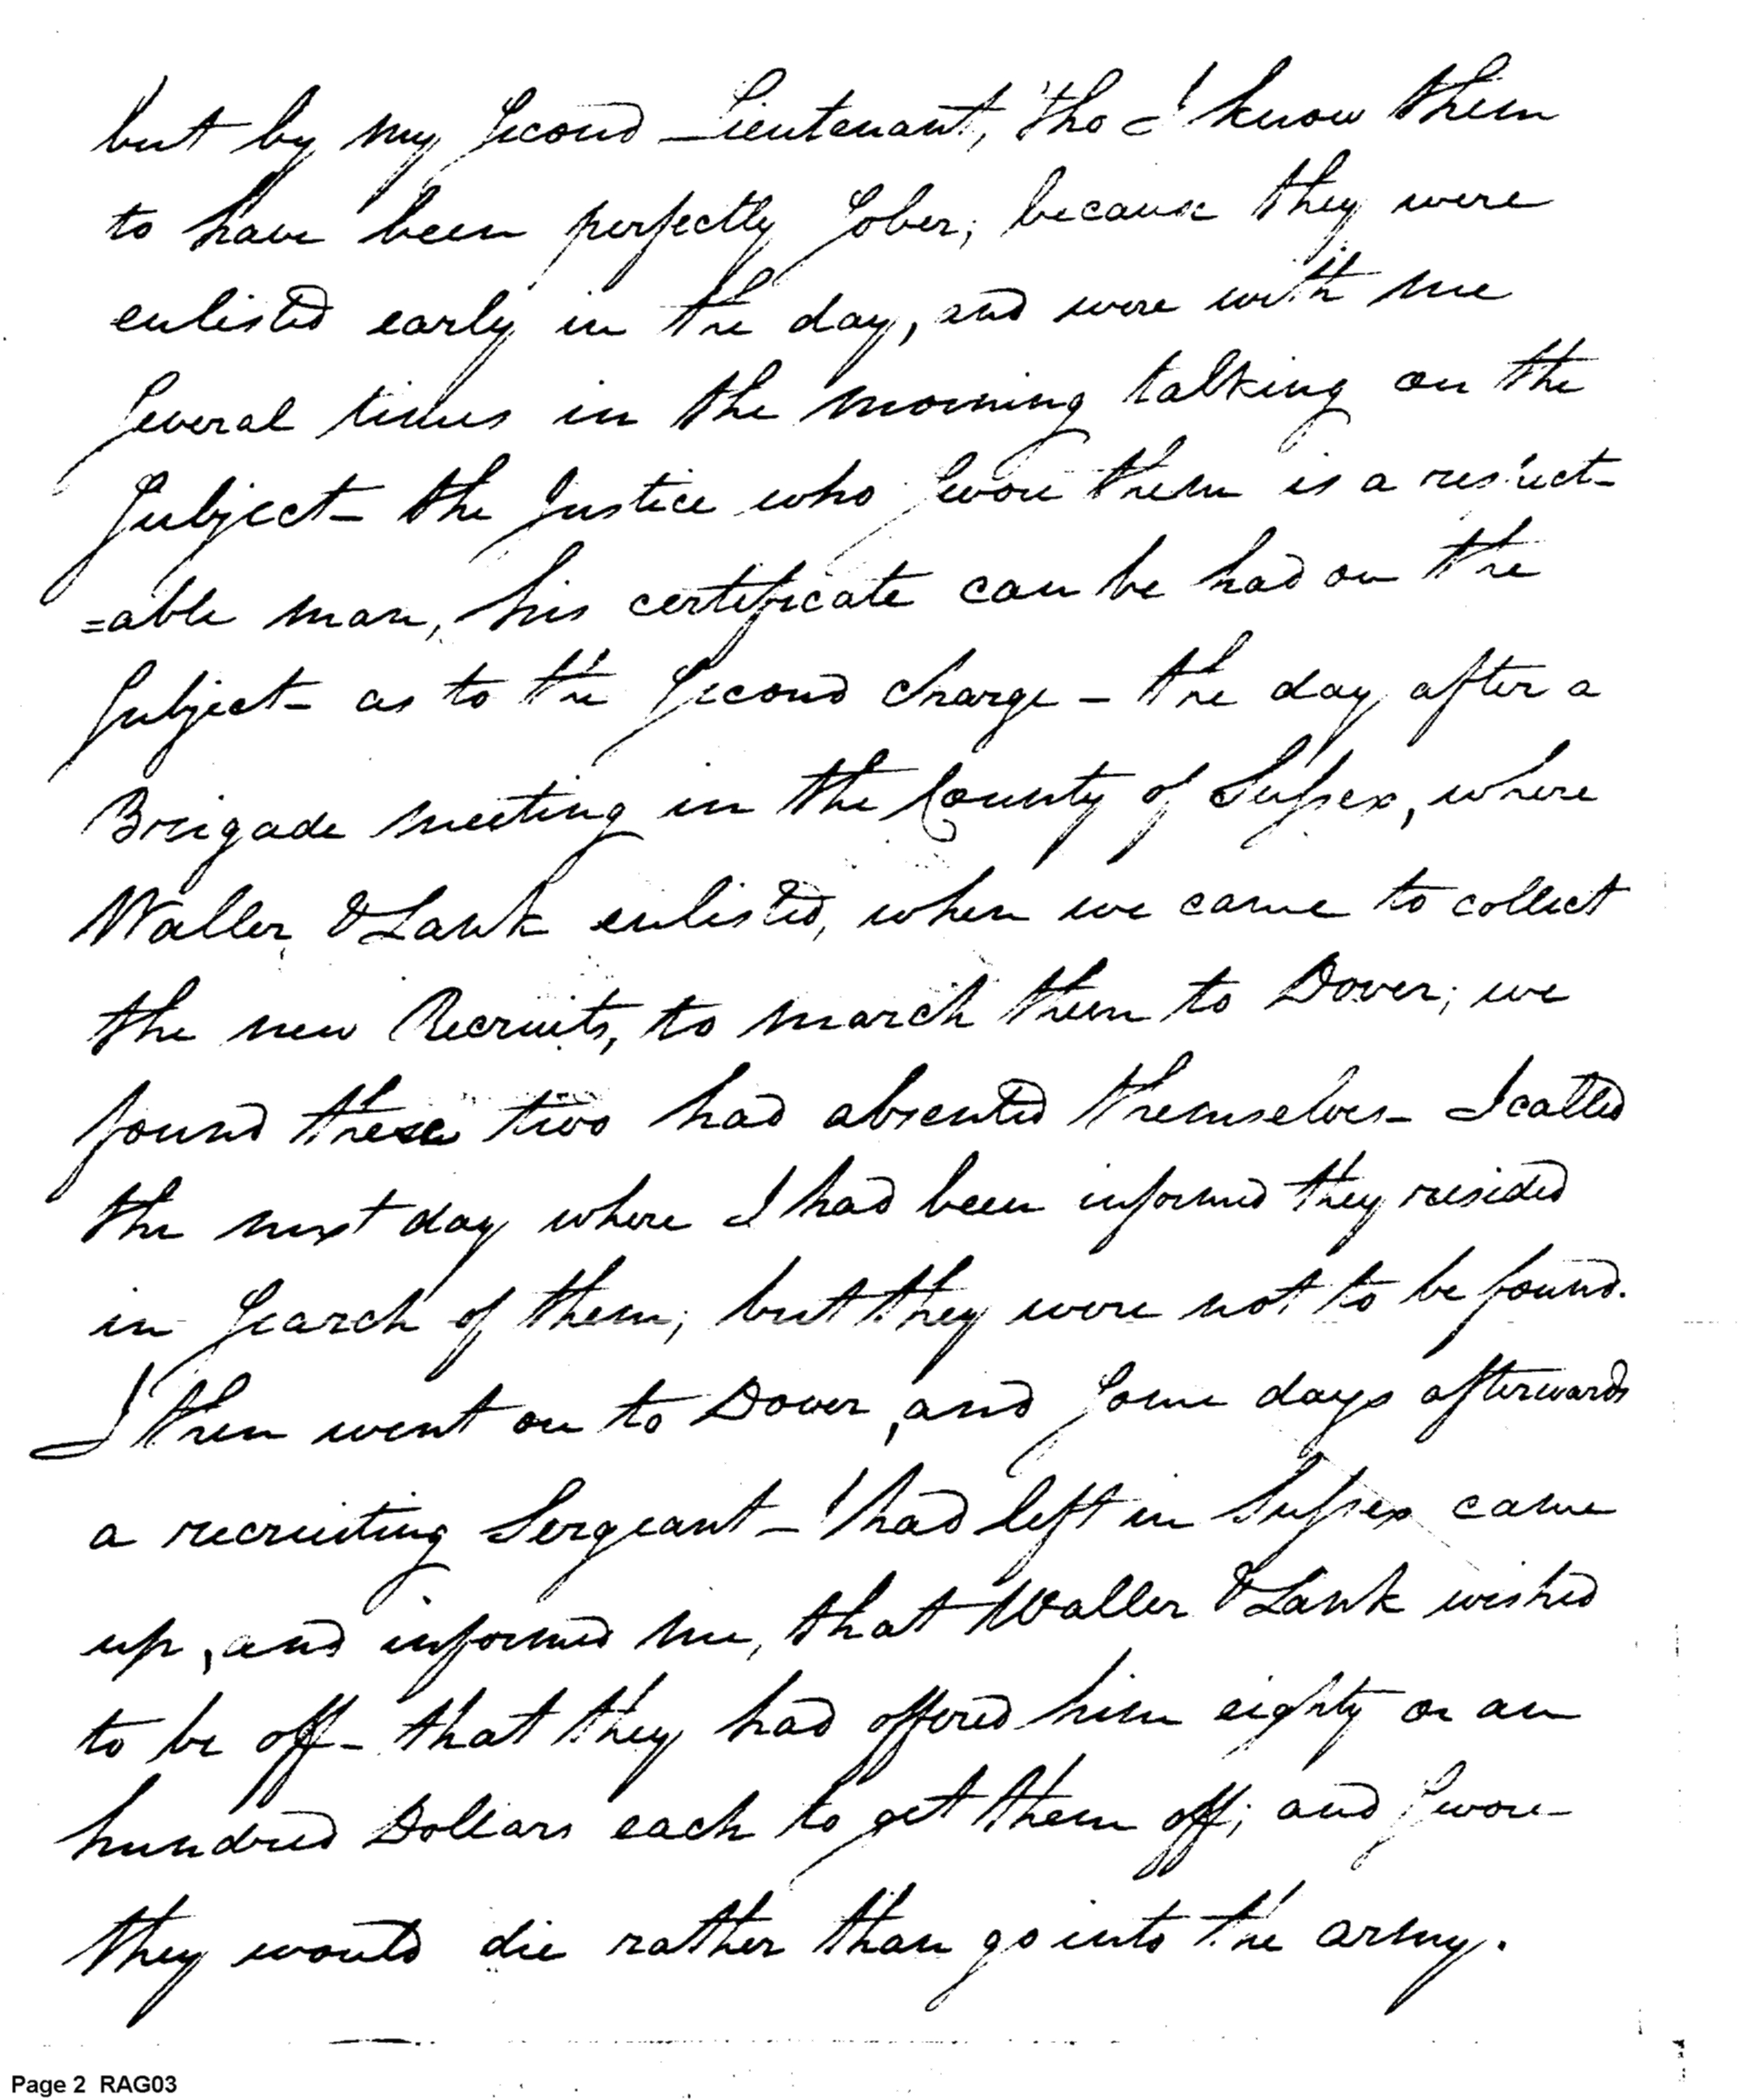 but by my Second Lieutenant, 'tho I know them
to have been perfectly Sober; because they were
enlisted early in the day, and were with me
Several times in the morning talking on the
Subject - the Justice who Swore them is a respect-
=able man, his certificate can be had on the
Subject - as to the Second charge - the day after a
Brigade meeting in the County of Sussex, where
Waller & Lank enlisted, when we came to collect
the new Recruits, to march them to Dover; we
found these two had absented themselves - I called
the next day where I had been informed they resided
in Search of them; but they were not to be found.
I then went on to Dover, and Some days afterwards
a recruiting Sergeant - I had left in Sussex came
up, and informed me, that Waller & Lank wished
to be off - that they had offered him eighty or an
hundred Dollars each to get them off; and Swore -
they would die rather than go into the army.
Page 2 RAG03